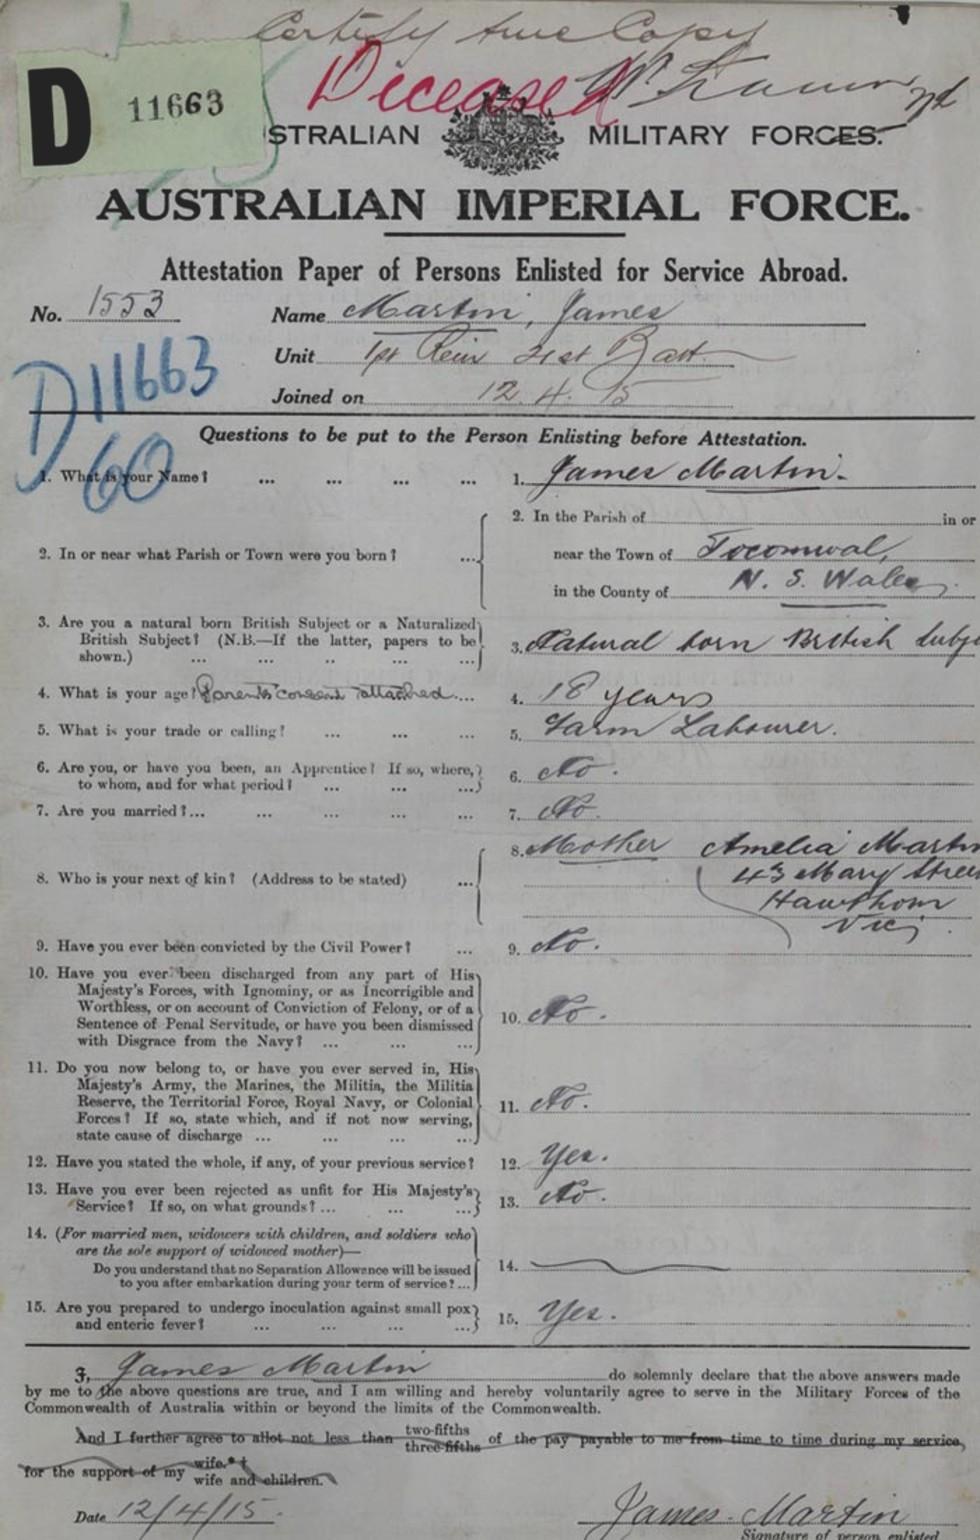 Certify true Copy
Deceased
D 11663
STRALIAN MILITARY FORCES.
AUSTRALIAN IMPERIAL FORCE.
Attestation Paper of Persons Enlisted for Service Abroad.
No. 1553 Name Martin, James
Unit 1st Rein 21st Batt.
Joined on 12. 4. 15
D11663
60
Questions to be put to the Person Enlisting before Attestation.
1. What is your Name? ... ... ... ... 1. James Martin.
2. In or near what Parish or Town were you born? ... 2. In the Parish of in or
near the Town of Tocomwal,
in the County of N. S. Wales
3. Are you a natural born British Subject or a Naturalized
British Subject? (N.B.—If the latter, papers to be
shown.) ... ... .. ... ... 3. Natural born British Subje
4. What is your age? Parents consent attached.... 4. 18 years
5. What is your trade or calling? ... ... ... 5. Farm Labourer.
6. Are you, or have you been, an Apprentice? If so, where,
to whom, and for what period? ... ... ... 6. No.
7. Are you married?... ... ... ... ... 7. No.
8. Who is your next of kin? (Address to be stated) ... 8. Mother Amelia Martin
43 Mary Stree
Hawthorn
Vic
9. Have you ever been convicted by the Civil Power? ... 9. No.
10. Have you ever been discharged from any part of His
Majesty's Forces, with Ignominy, or as Incorrigible and
Worthless, or on account of Conviction of Felony, or of a
Sentence of Penal Servitude, or have you been dismissed
with Disgrace from the Navy? ... ... ... 10. No.
11. Do you now belong to, or have you ever served in, His
Majesty's Army, the Marines, the Militia, the Militia
Reserve, the Territorial Force, Royal Navy, or Colonial
Forces? If so, state which, and if not now serving,
state cause of discharge ... ... ... ... 11. No.
12. Have you stated the whole, if any, of your previous service? 12. Yes.
13. Have you ever been rejected as unfit for His Majesty's
Service? If so, on what grounds? ... ... ... 13. No.
14. (For married men, widowers with children, and soldiers who
are the sole support of widowed mother)—
Do you understand that no Separation Allowance will be issued
to you after embarkation during your term of service? ... 14.
15. Are you prepared to undergo inoculation against small pox
and enteric fever? ... ... ... ... 15. Yes.
I, James Martin do solemnly declare that the above answers made
by me to the above questions are true, and I am willing and hereby voluntarily agree to serve in the Military Forces of the
Commonwealth of Australia within or beyond the limits of the Commonwealth.
And I further agree to allot not less than two-fifths three-fifths of the pay payable to me from time to time during my service,
for the support of my wife.*† wife and children.
Date 12/4/15. James. Martin
Signature of person enlisted